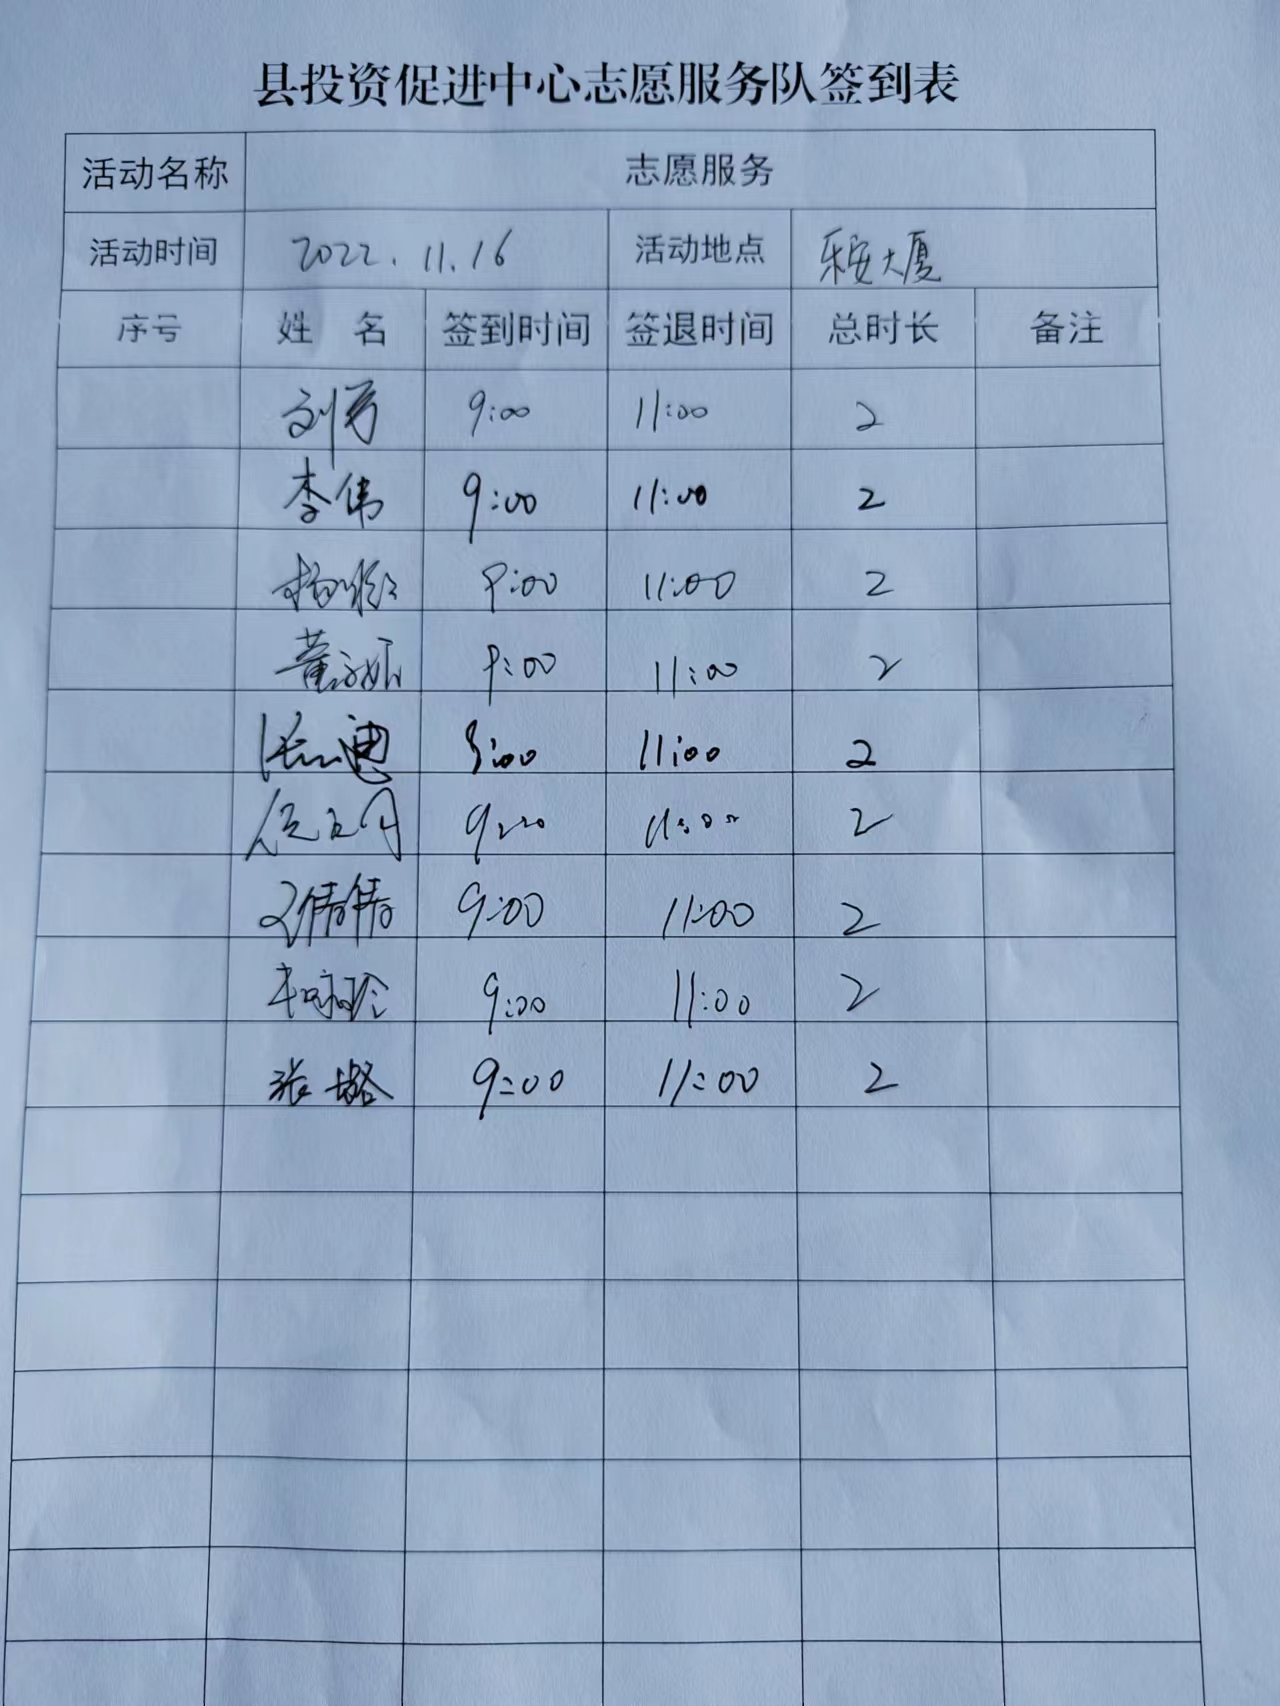 县投资促进中心志愿服务队签到表
活动名称 志愿服务
活动时间 2022.11.16 活动地点 乐安大厦
序号 姓 名 签到时间 签退时间 总时长 备注
刘芳 9:00 11:00 2
李伟 9:00 11:00 2
9:00 11:00 2
董 9:00 11:00 2
9:00 11:00 2
9:00 11:00 2
倩倩 9:00 11:00 2
9:00 11:00 2
张璐 9:00 11:00 2